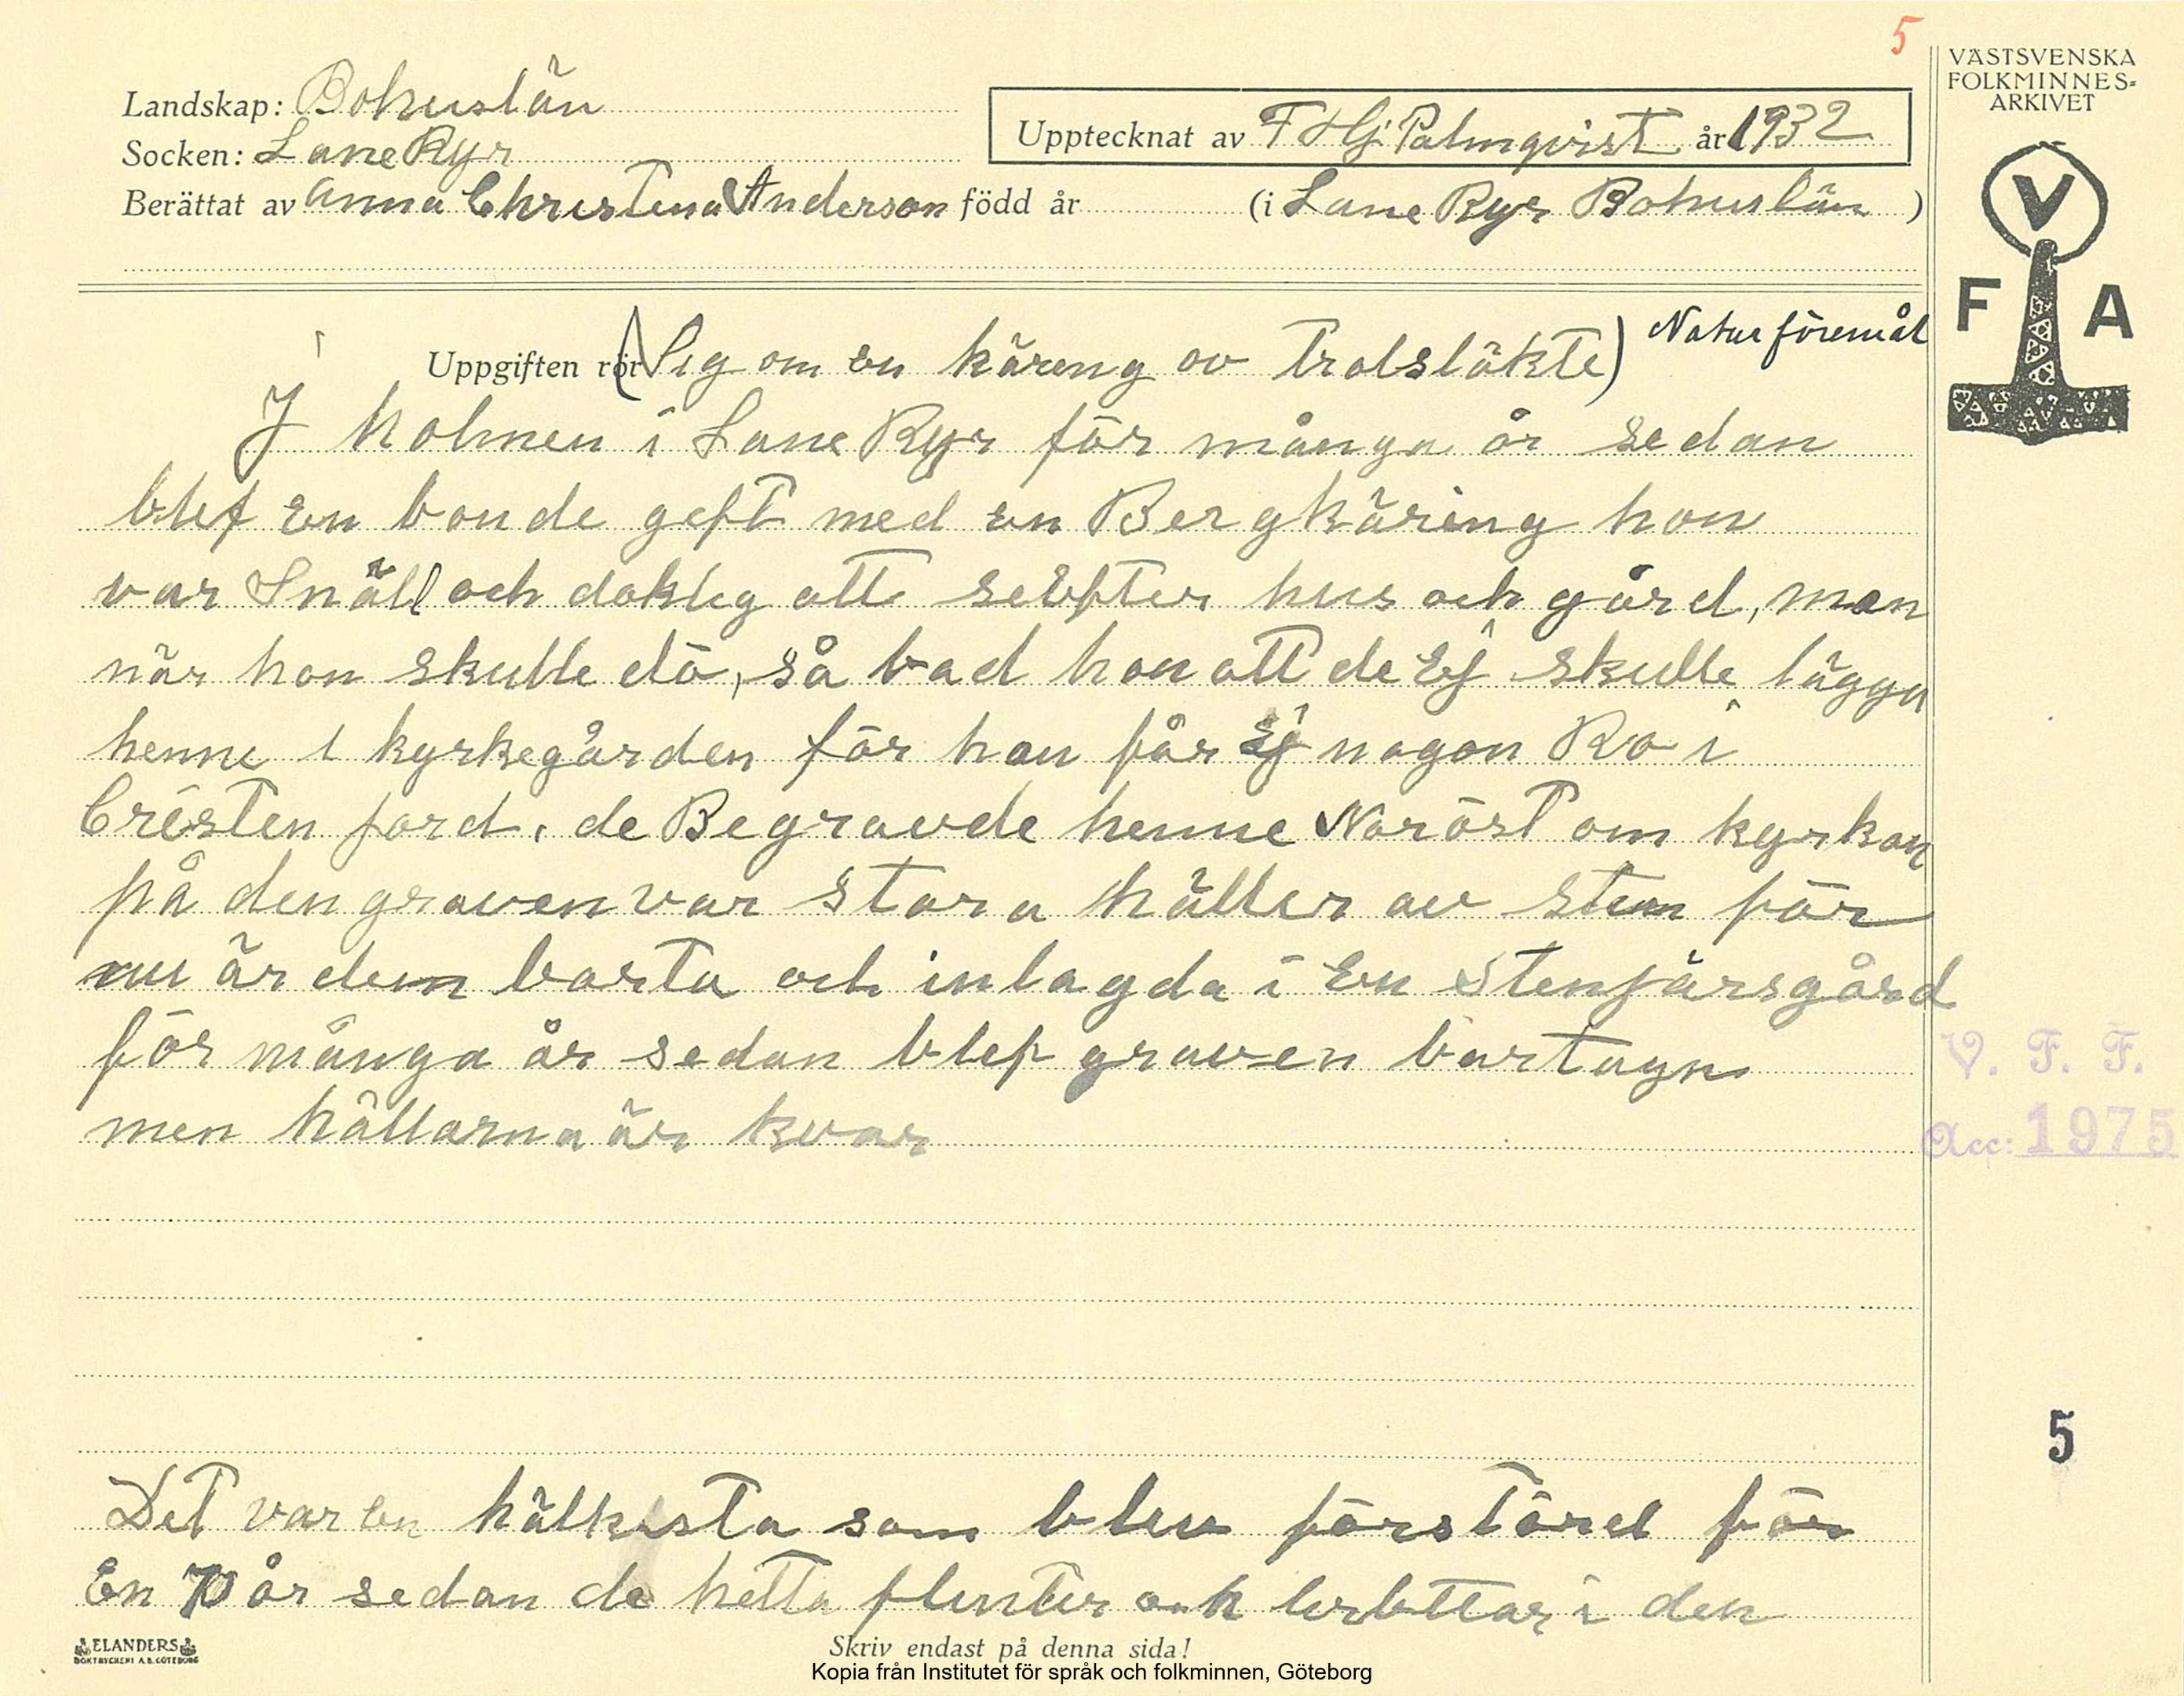 5
VÄSTSVENSKA
FOLKMINNES-
ARKIVET
Landskap: Bohuslän
Socken: Lane Ryr
Upptecknat av F Hj. Palmqvist år 1932
Berättat av Anna Christena Anderson född år (i Lane Ryr Bohuslän)
V
F A
Uppgiften rör (Sig om en käreng av trolsläkte) Naturföremål
I holmen i Lane Ryr för många år sedan
blef en bonde geft med en Bergkäring hon
var Snäll och doktig att se efter hus och gård, men
när hon skulle dö, så bad hon att de Ej skulle lägga
henne i kyrkegården för hon får Ej nogon Ro i
Cristen jord, de Begravde henne Noröst om kyrkan
på den graven var stora häller av sten för
nu är dem borta och inlagda i En Stenjärsgård
för många år sedan blef graven bortagn
men hällarna är kvar
V. F. F.
Acc: 1975
5
Det var en hälkista som blev förstörd för
En 70 år sedan de hitta flinter och lerbttar i den
ELANDERS
BOKTRYCKERI A.B. GÖTEBORG
Skriv endast på denna sida!
Kopia från Institutet för språk och folkminnen, Göteborg